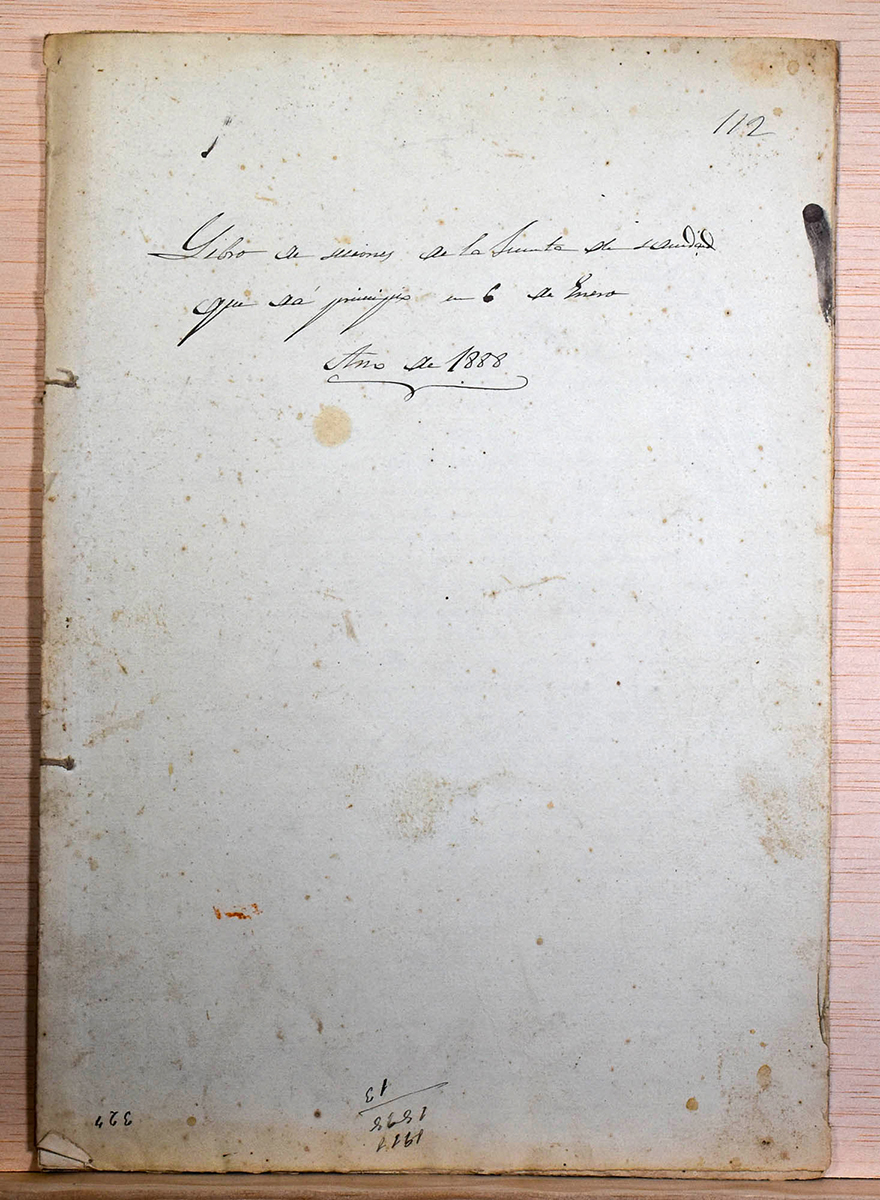 112
Libro de seciones de la Junta de sanidad
que dá principio en 6 de Enero
Año de 1888
1911
1898
13
324